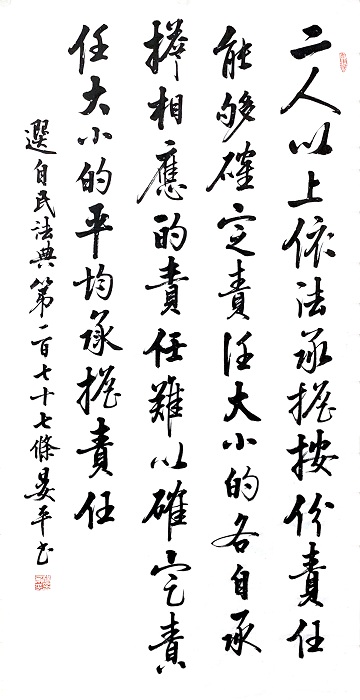 二人以上依法承擔按份責任
能够確定責任大小的各自承
擔相應的責任難以確定責
任大小的平均承擔責任
選自民法典第一百七十七條晏平书